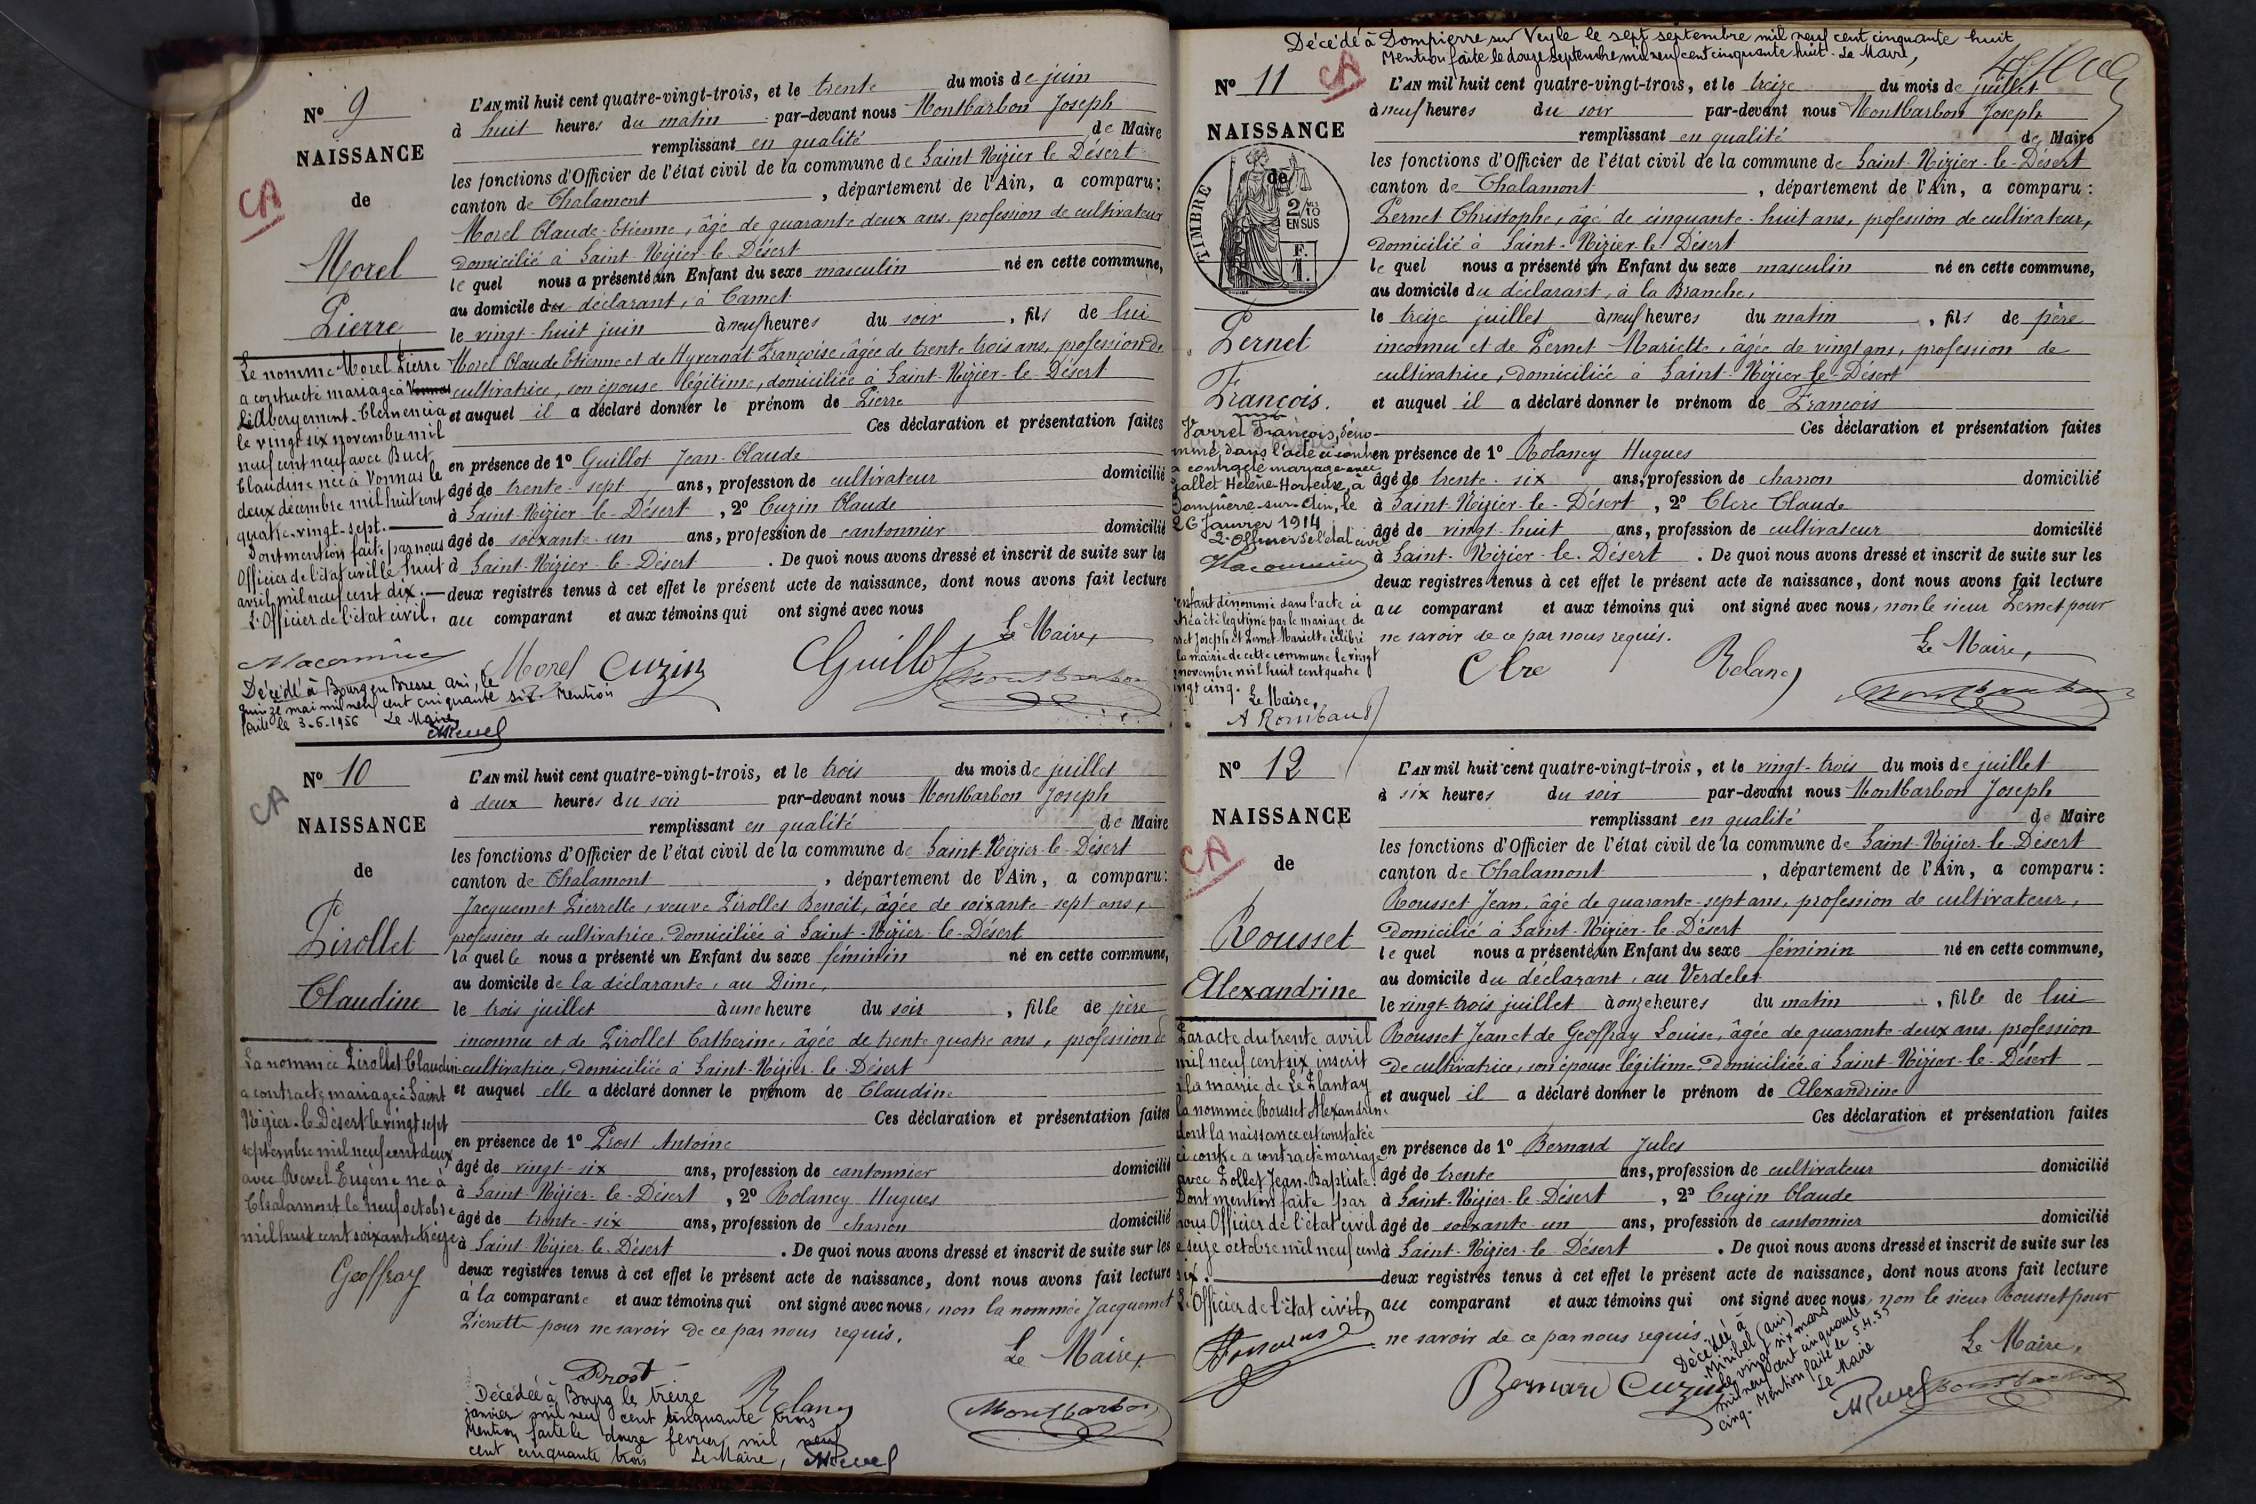 Nº 9
NAISSANCE
de
Morel
Pierre
CA
L'AN mil huit cent quatre-vingt-trois, et le trente du mois de juin
à huit heures du matin par-devant nous Montbarbon Joseph
remplissant en qualité de Maire
les fonctions d'Officier de l'état civil de la commune de Saint-Nizier-le-Désert
canton de Chalamont, département de l'Ain, a comparu:
Morel Claude-Etienne, âgé de quarante-deux ans, profession de cultivateur
domicilié à Saint-Nizier-le-Désert
le quel nous a présenté un Enfant du sexe masculin né en cette commune,
au domicile du déclarant, à Camet
le vingt-huit juin à neuf heures du soir, fils de lui
Morel Claude Etienne et de Hyvernat Françoise, âgée de trente trois ans, profession de
cultivatrice, son épouse légitime, domiciliée à Saint-Nizier-le-Désert
et auquel il a déclaré donner le prénom de Pierre
Ces déclaration et présentation faites
en présence de 1º Guillot Jean-Claude
âgé de trente-sept ans, profession de cultivateur domicilié
à Saint-Nizier-le-Désert, 2º Cuzin Claude
âgé de soixante-un ans, profession de cantonnier domicilié
à Saint-Nizier-le-Désert. De quoi nous avons dressé et inscrit de suite sur les
deux registres tenus à cet effet le présent acte de naissance, dont nous avons fait lecture
au comparant et aux témoins qui ont signé avec nous
Le Maire,
Morel Cuzin CGuillot Montbarbon
Le nommé Morel Pierre
a contracté mariage à Vonnas
L'Abergement-Clemencia
le vingt six novembre mil
neuf cent neuf avec Buct
Claudine née à Vonnas le
deux décembre mil huit cent
quatre-vingt-sept.
Dont mention faite par nous
Officier de l'état civil le huit
avril mil neuf cent dix.
L'Officier de l'état civil,
Décédé à Bourg en Bresse Ain, le
quinze mai mil neuf cent cinquante six Mention
faite le 3-6-1956 Le Maire
Nº 10
CA
NAISSANCE
de
Pirollet
Claudine
L'AN mil huit cent quatre-vingt-trois, et le trois du mois de juillet
à deux heures du soir par-devant nous Montbarbon Joseph
remplissant en qualité de Maire
les fonctions d'Officier de l'état civil de la commune de Saint-Nizier-le-Désert
canton de Chalamont, département de l'Ain, a comparu:
Jacquemet Pierrette, veuve Pirollet Benoit, âgée de soixante-sept ans,
profession de cultivatrice, domiciliée à Saint-Nizier-le-Désert
la quelle nous a présenté un Enfant du sexe féminin né en cette commune,
au domicile de la déclarante, au Dime,
le trois juillet à une heure du soir, fille de père
inconnu et de Pirollet Catherine, âgée de trente quatre ans, profession de
cultivatrice, domiciliée à Saint-Nizier-le-Désert
et auquel elle a déclaré donner le prénom de Claudine
Ces déclaration et présentation faites
en présence de 1º Prost Antoine
âgé de vingt-six ans, profession de cantonnier domicilié
à Saint-Nizier-le-Désert, 2º Rolancy Hugues
âgé de trente-six ans, profession de charron domicilié
à Saint-Nizier-le-Désert. De quoi nous avons dressé et inscrit de suite sur les
deux registres tenus à cet effet le présent acte de naissance, dont nous avons fait lecture
à la comparante et aux témoins qui ont signé avec nous, non la nommée Jacquemet
Pierrette pour ne savoir de ce par nous requis.
Le Maire,
Prost Rolancy Montbarbon
La nommée Pirollet Claudine
a contracté mariage à Saint
Nizier-le-Désert le vingt sept
septembre mil neuf cent deux
avec Revel Eugène né à
Chalamont le neuf octobre
mil huit cent soixante treize
Geoffray
Décédée à Bourg le treize
janvier mil neuf cent cinquante trois
Mention faite le douze fevrier mil neuf
cent cinquante trois Le Maire,
Décédé à Dompierre sur Veyle le sept septembre mil neuf cent cinquante huit
Mention faite le douze septembre mil neuf cent cinquante huit. Le Maire,
Nº 11
CA
NAISSANCE
de
TIMBRE
2/10
EN SUS
F.
1.
Pernet
François.
L'AN mil huit cent quatre-vingt-trois, et le treize du mois de juillet
à neuf heures du soir par-devant nous Montbarbon Joseph
remplissant en qualité de Maire
les fonctions d'Officier de l'état civil de la commune de Saint-Nizier-le-Désert
canton de Chalamont, département de l'Ain, a comparu:
Pernet Christophe, âgé de cinquante-huit ans, profession de cultivateur,
domicilié à Saint-Nizier-le-Désert
le quel nous a présenté un Enfant du sexe masculin né en cette commune,
au domicile du déclarant, à la Branche,
le treize juillet à neuf heures du matin, fils de père
inconnu et de Pernet Mariette, âgée de vingt ans, profession de
cultivatrice, domiciliée à Saint-Nizier-le-Désert
et auquel il a déclaré donner le prénom de François
Ces déclaration et présentation faites
en présence de 1º Rolancy Hugues
âgé de trente-six ans, profession de charron domicilié
à Saint-Nizier-le-Désert, 2º Clerc Claude
âgé de vingt-huit ans, profession de cultivateur domicilié
à Saint-Nizier-le-Désert. De quoi nous avons dressé et inscrit de suite sur les
deux registres tenus à cet effet le présent acte de naissance, dont nous avons fait lecture
au comparant et aux témoins qui ont signé avec nous, non le sieur Pernet pour
ne savoir de ce par nous requis.
Le Maire,
Clre Rolancy Montbarbon
Varret François, déno-
mmé dans l'acte ci contre
a contracté mariage avec
Jallet Hélène Hortense, à
Dompierre-sur-Ain, le
26 Janvier 1914
L'Officier de l'état civil
enfant dénommé dans l'acte ci
a été légitimé par le mariage de
Joseph et Pernet Mariette célébré
la mairie de cette commune le vingt
novembre mil huit cent quatre
vingt cinq.
Le Maire,
A Rombaud
Nº 12
CA
NAISSANCE
de
Rousset
Alexandrine
L'AN mil huit cent quatre-vingt-trois, et le vingt-trois du mois de juillet
à six heures du soir par-devant nous Montbarbon Joseph
remplissant en qualité de Maire
les fonctions d'Officier de l'état civil de la commune de Saint-Nizier-le-Désert
canton de Chalamont, département de l'Ain, a comparu:
Rousset Jean, âgé de quarante-sept ans, profession de cultivateur,
domicilié à Saint-Nizier-le-Désert
le quel nous a présenté un Enfant du sexe féminin né en cette commune,
au domicile du déclarant, au Verdelet
le vingt-trois juillet à onze heures du matin, fille de lui
Rousset Jean et de Geoffray Louise, âgée de quarante-deux ans, profession
de cultivatrice, son épouse légitime domiciliée à Saint-Nizier-le-Désert
et auquel il a déclaré donner le prénom de Alexandrine
Ces déclaration et présentation faites
en présence de 1º Bernard Jules
âgé de trente ans, profession de cultivateur domicilié
à Saint-Nizier-le-Désert, 2º Cuzin Claude
âgé de soixante-un ans, profession de cantonnier domicilié
à Saint-Nizier-le-Désert. De quoi nous avons dressé et inscrit de suite sur les
deux registres tenus à cet effet le présent acte de naissance, dont nous avons fait lecture
au comparant et aux témoins qui ont signé avec nous, non le sieur Rousset pour
ne savoir de ce par nous requis.
Le Maire,
Bernard Cuzin Montbarbon
Par acte du trente avril
mil neuf cent six, inscrit
à la mairie de Le Plantay
la nommée Rousset Alexandrine
dont la naissance est constatée
ci contre a contracté mariage
avec Pollet Jean-Baptiste.
Dont mention faite par
nous Officier de l'état civil
le seize octobre mil neuf cent
six.
L'Officier de l'état civil,
Décédée à
Miribel (ain)
le vingt six mars
mil neuf cent cinquante
cinq. Mention faite le 5.4.55
Le Maire